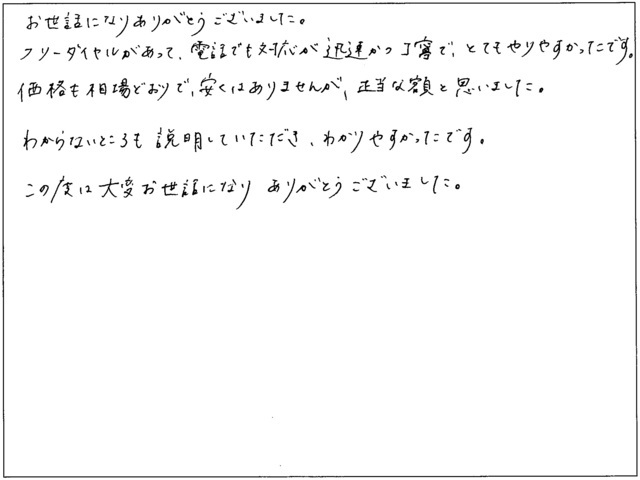 お世話になりありがとうございました。
フリーダイヤルがあって、電話でも対応が迅速かつ丁寧で、とてもやりやすかったです。
価格も相場どおりで、安くはありませんが、正当な額と思いました。
わからないところも説明していただき、わかりやすかったです。
この度は大変お世話になりありがとうございました。